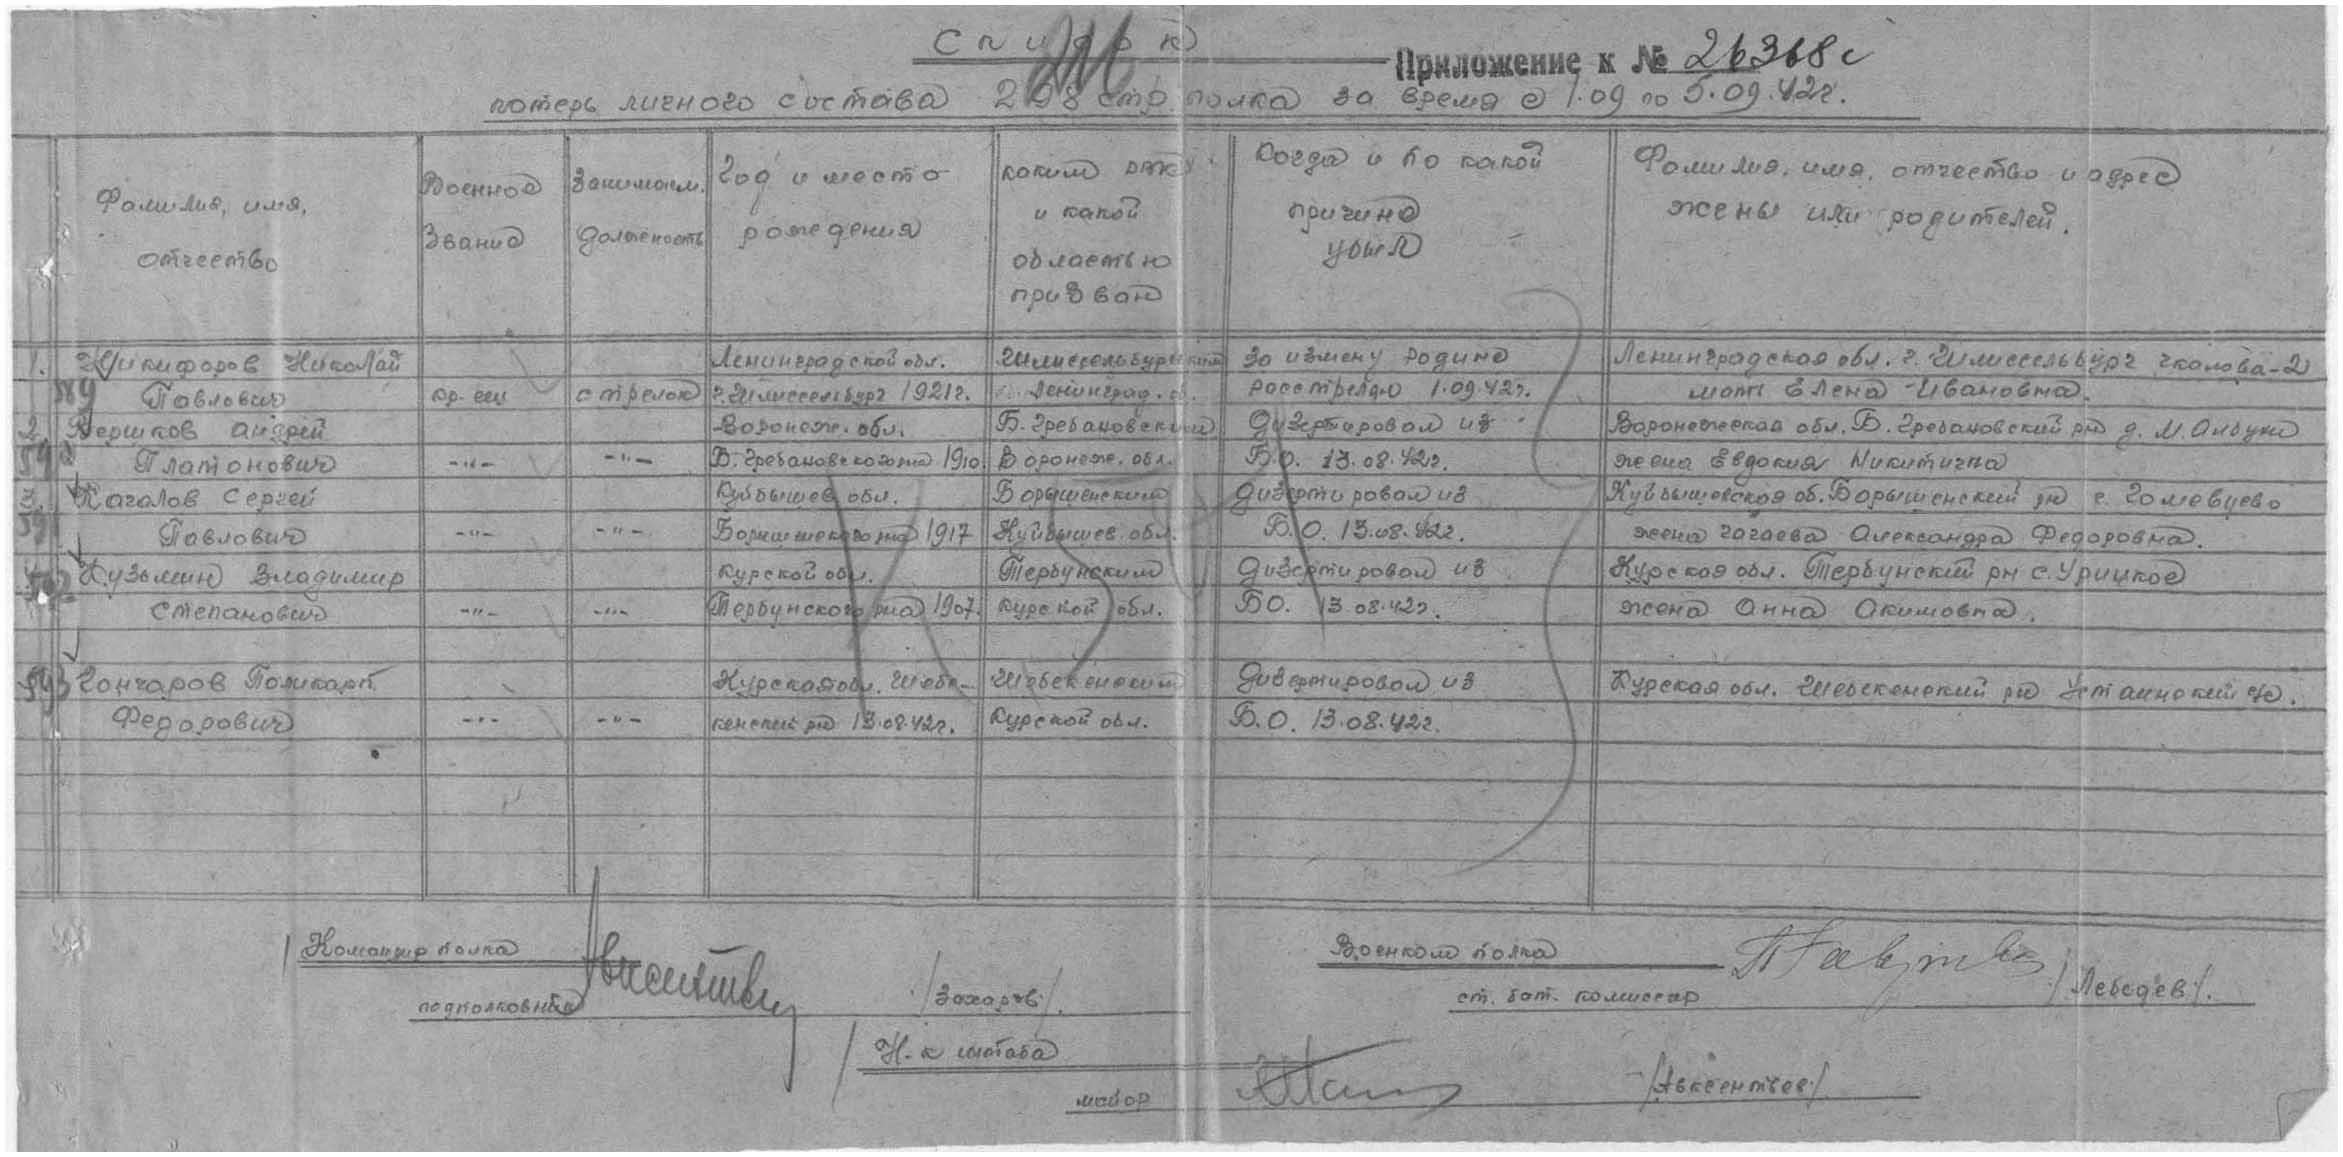 Список
Приложение к № 26368с
потерь личного состава 298 стр. полка за время с 1.09 по 5.09.42г.
Фамилия, имя, отчество
Военное звание
Занимаем. должность
Год и место рождения
каким рвк и какой областью призван
Когда и по какой причине убыл
Фамилия, имя, отчество и адрес жены или родителей.
1. Никифоров Николай Ленинградской обл. Шлиссельбургским за измену родине Ленинградская обл. г. Шлиссельбург Чкалова-2
589 Павлович кр-ец стрелок г. Шлиссельбург 1921г. Ленинград. об. расстрелян 1.09.42г. мать Елена Ивановна.
2. Вершков Андрей Воронеж. обл. Б. Гребановским Дизертировал из Воронежская обл. Б. Гребановский рн д. М. Алабухи
590 Платонович -"- -"- Б. Гребановского рна 1910. Воронеж. обл. Б.О. 13.08.42г. жена Евдокия Никитична
3. Качалов Сергей Куйбышев. обл. Борышенским Дизертировал из Куйбышевская об. Борышенский рн с.
591 Павлович -"- -"- рна 1917 Куйбышев. обл. Б.О. 13.08.42г. жена Александра Федоровна.
Кузьмин Владимир Курской обл. Тербунским Дизертировал из Курская обл. Тербунский рн с. Урицкое
592 Степанович -"- -"- Тербунского рна 1907. Курской обл. Б.О. 13.08.42г. жена Анна Акимовна.
593 Гончаров Поликарп Курская обл. Шебе- Шебекенским Дизертировал из Курская обл. Шебекенский рн с/с.
Федорович -"- -"- кенский рн 13.08.42г. Курской обл. Б.О. 13.08.42г.
/Командир полка
подполковник /Захаров/.
Военком полка
ст. бат. комиссар /Лебедев/.
/Н-к штаба
майор /Авксентьев/